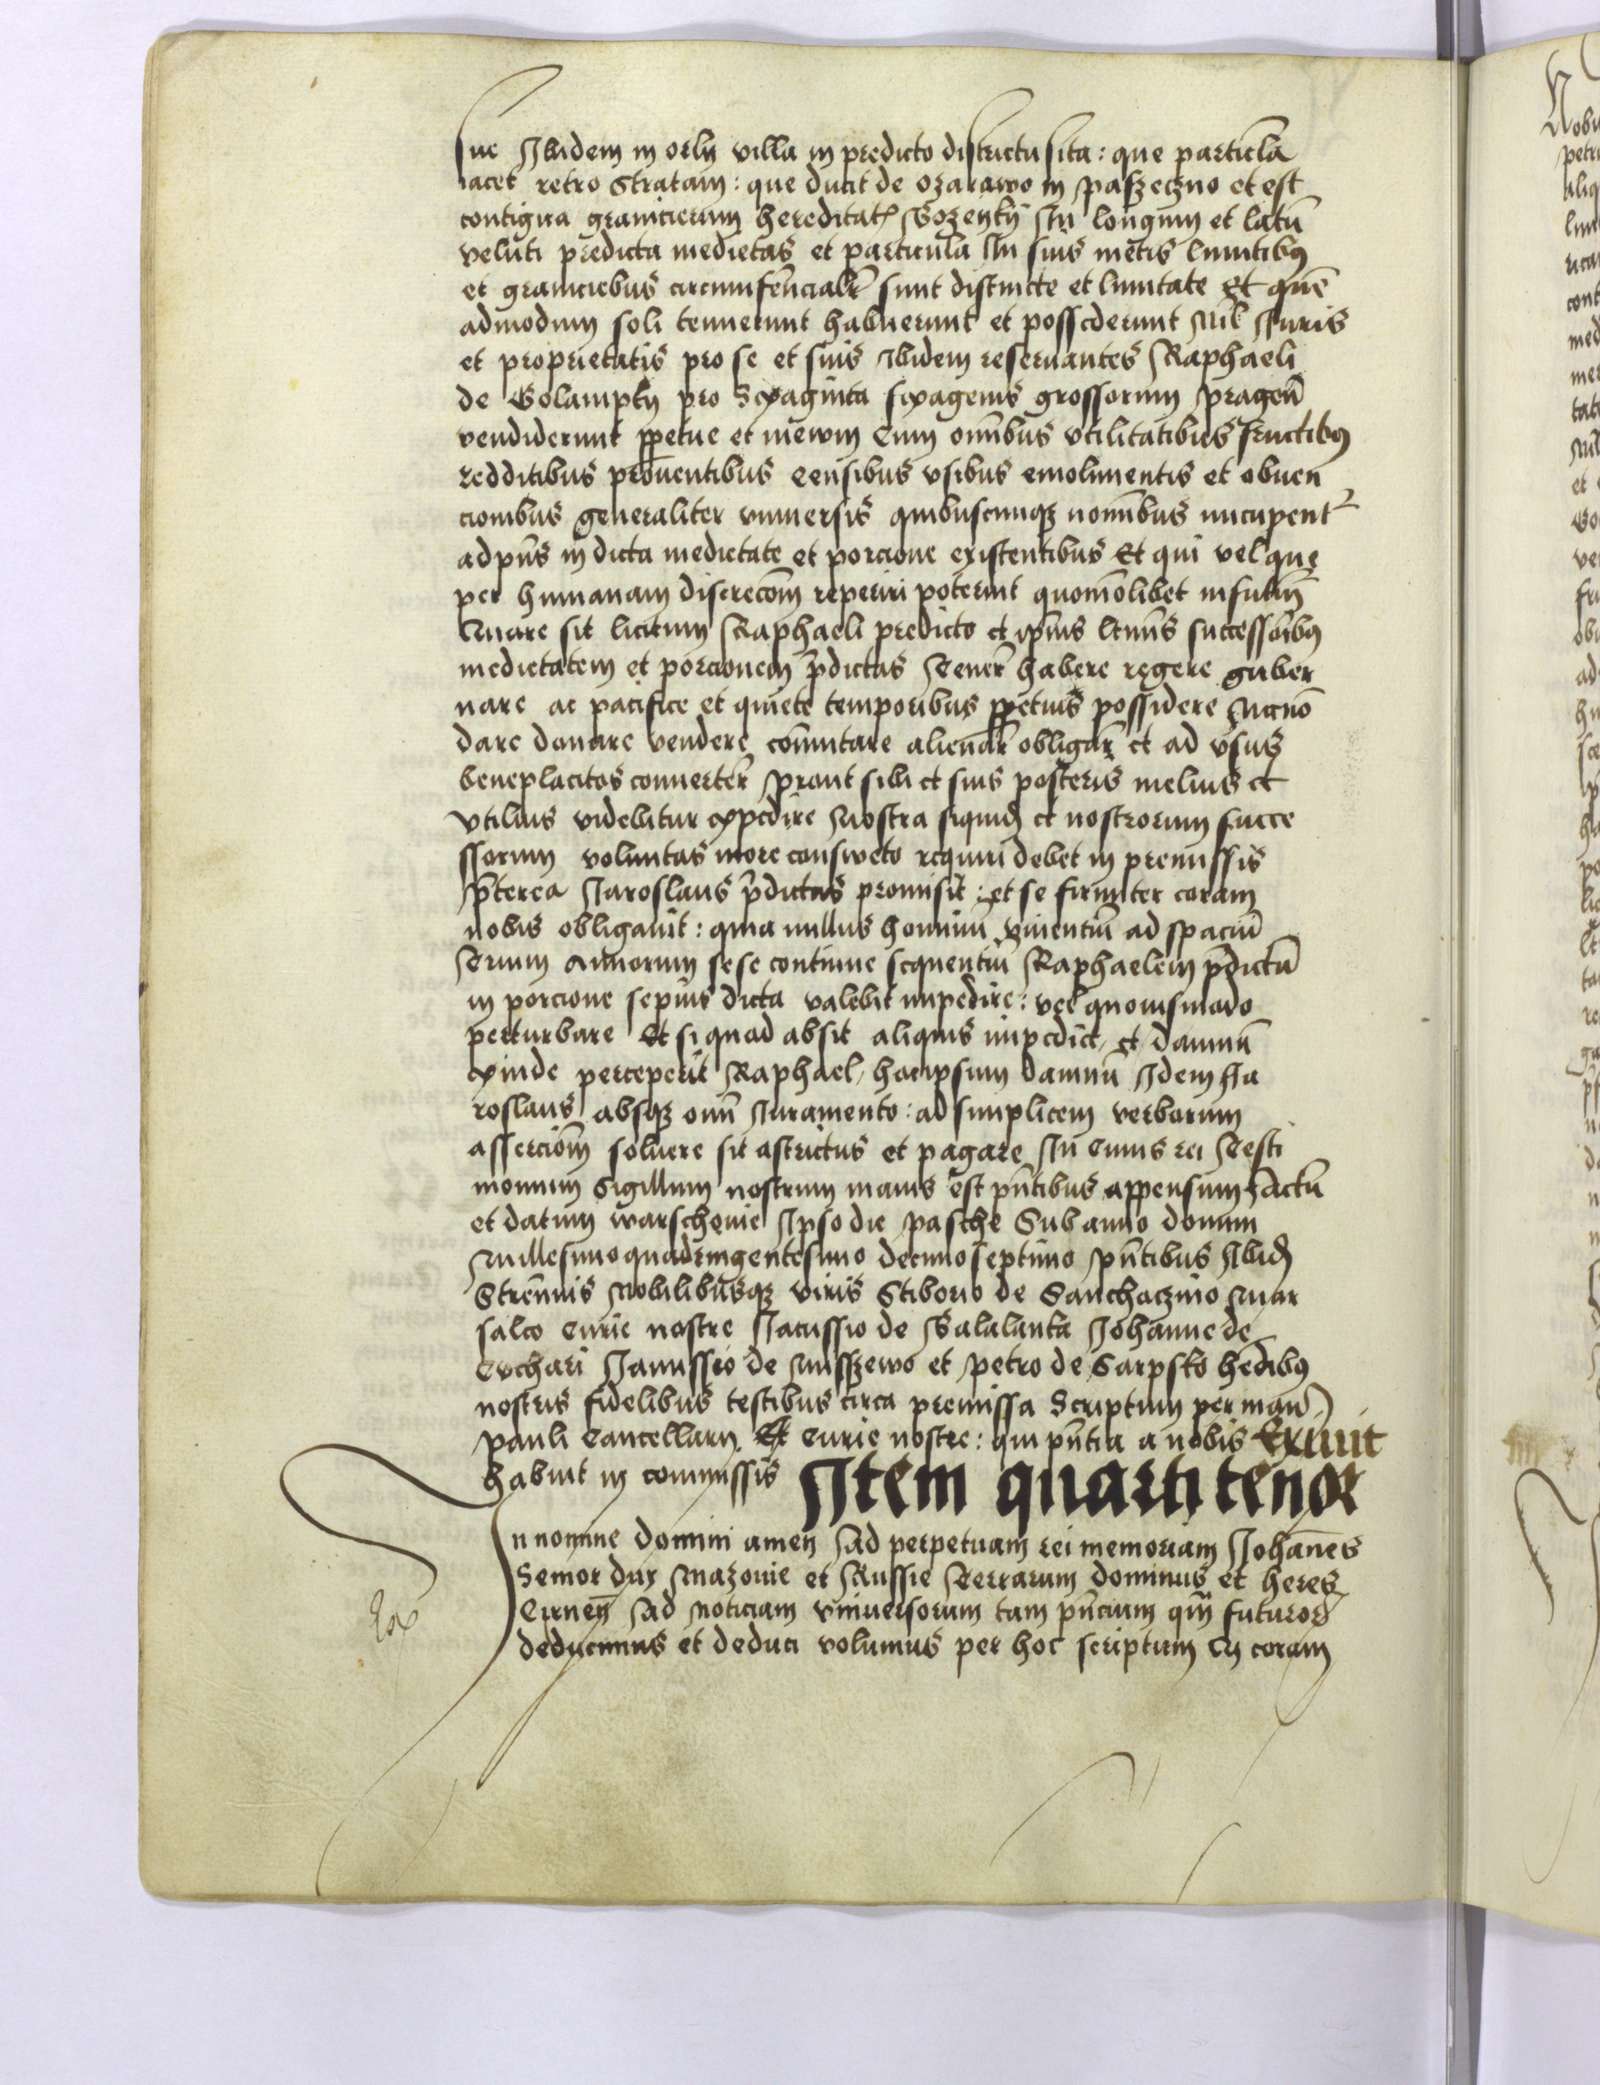 sue Ibidem in orly villa in predicto districtu sita : que particula
iacet retro Stratam : que ducit de Ozarowo in paszeczno et est
contigua granicierum hereditatꝭ Gozenty In longum et latū
veluti predicta medietas et particula In suis metis limitibꝯ
et graniciebus circumferēcialr̄ sunt distincte et limitate Et quē
admodum soli tenuerunt habuerunt et possederunt Nil Iuris
et proprietatis pro se et suis Ibidem reseruantes Raphaeli
de Golampky pro Sexaginta sexagenis grossorum pragen̄
vendiderunt ꝑpetue et in ewm Cum omībus vtilitatibus fructibꝯ
redditibus prouentibus Censibus vsibus emolimentis et obuen
cionibus generaliter vniuersis quibuscunqꝫ nomībus nucupent᷑
ad pn̄s in dicta medietate et porcione existentibus Et qui vel que
per humanam discrecōm reperiri poterint quomōlibet in futurū
Quare sit licitum Raphaeli predicto et ip̄ius ltīmis successoribꝯ
medietatem et porcionem p̄dictas Tener̄ habere regere guber
nare ac pacifice et quiete temporibus ꝑpetuis possidere Necnō
dare donare vendere cōmutare alienar̄ obligar̄ et ad vsus
beneplacitos conuerter̄ Prout sibi et suis posteris melius et
vtilius videbitur expedire Nostra siquid̄ et nostrorum succe
ssorum voluntas more consweto requiri debet in premissis
P̄terea Iaroslaus p̄dictus promisit : et se firmiter coram
nobis obligauit : quia nullus hominū viuentiū ad spaciū
Trium Annorum sese continue sequentiū Raphaelem p̄dictū
in porcione sepius dicta valebit impedire : vel quouismodo
perturbare Et si quod absit aliquis impediet et damnū
exinde perceperit Raphael, hoc ipsum damnū Idem Ia
roslaus absqꝫ omī Iuramento : ad simplicem verborum
assercioīm soluere sit astrictus et pagare In Cuius rei Testi
monium Sigillum nostrum maius est pn̄tibus appensum Actū
et datum warschouie Ipso die pasche Sub anno domini
Millesimo quadringentesimo decimo septimo pn̄tibus Ibid̄
Strennuis Nobilibusqꝫ viris Stiborio de Sanchoczino Mar
salco Curie nostre Iacussio de Galalanka Iohanne de
Cuchari Ianussio de Misszewo et Petro de Sarpsko hēdibꝯ
nostris fidelibus testibus circa premissa Scriptum per man̄
pauli Cancellarij Et Curie nostre : qui pn̄tia a nobis
habuit in commissis Item quarti tenor Exiuit
In nomine domini amen Ad perpetuam rei memoriam Iohannes
Semor dux Mazouie et Russie Terrarum dominus et heres
Cirnen̄ Ad Noticiam vniuersorum tam pn̄cium qm̄ futuror̄
deducimus et deduci volumus per hoc scriptum Qꝫ coram